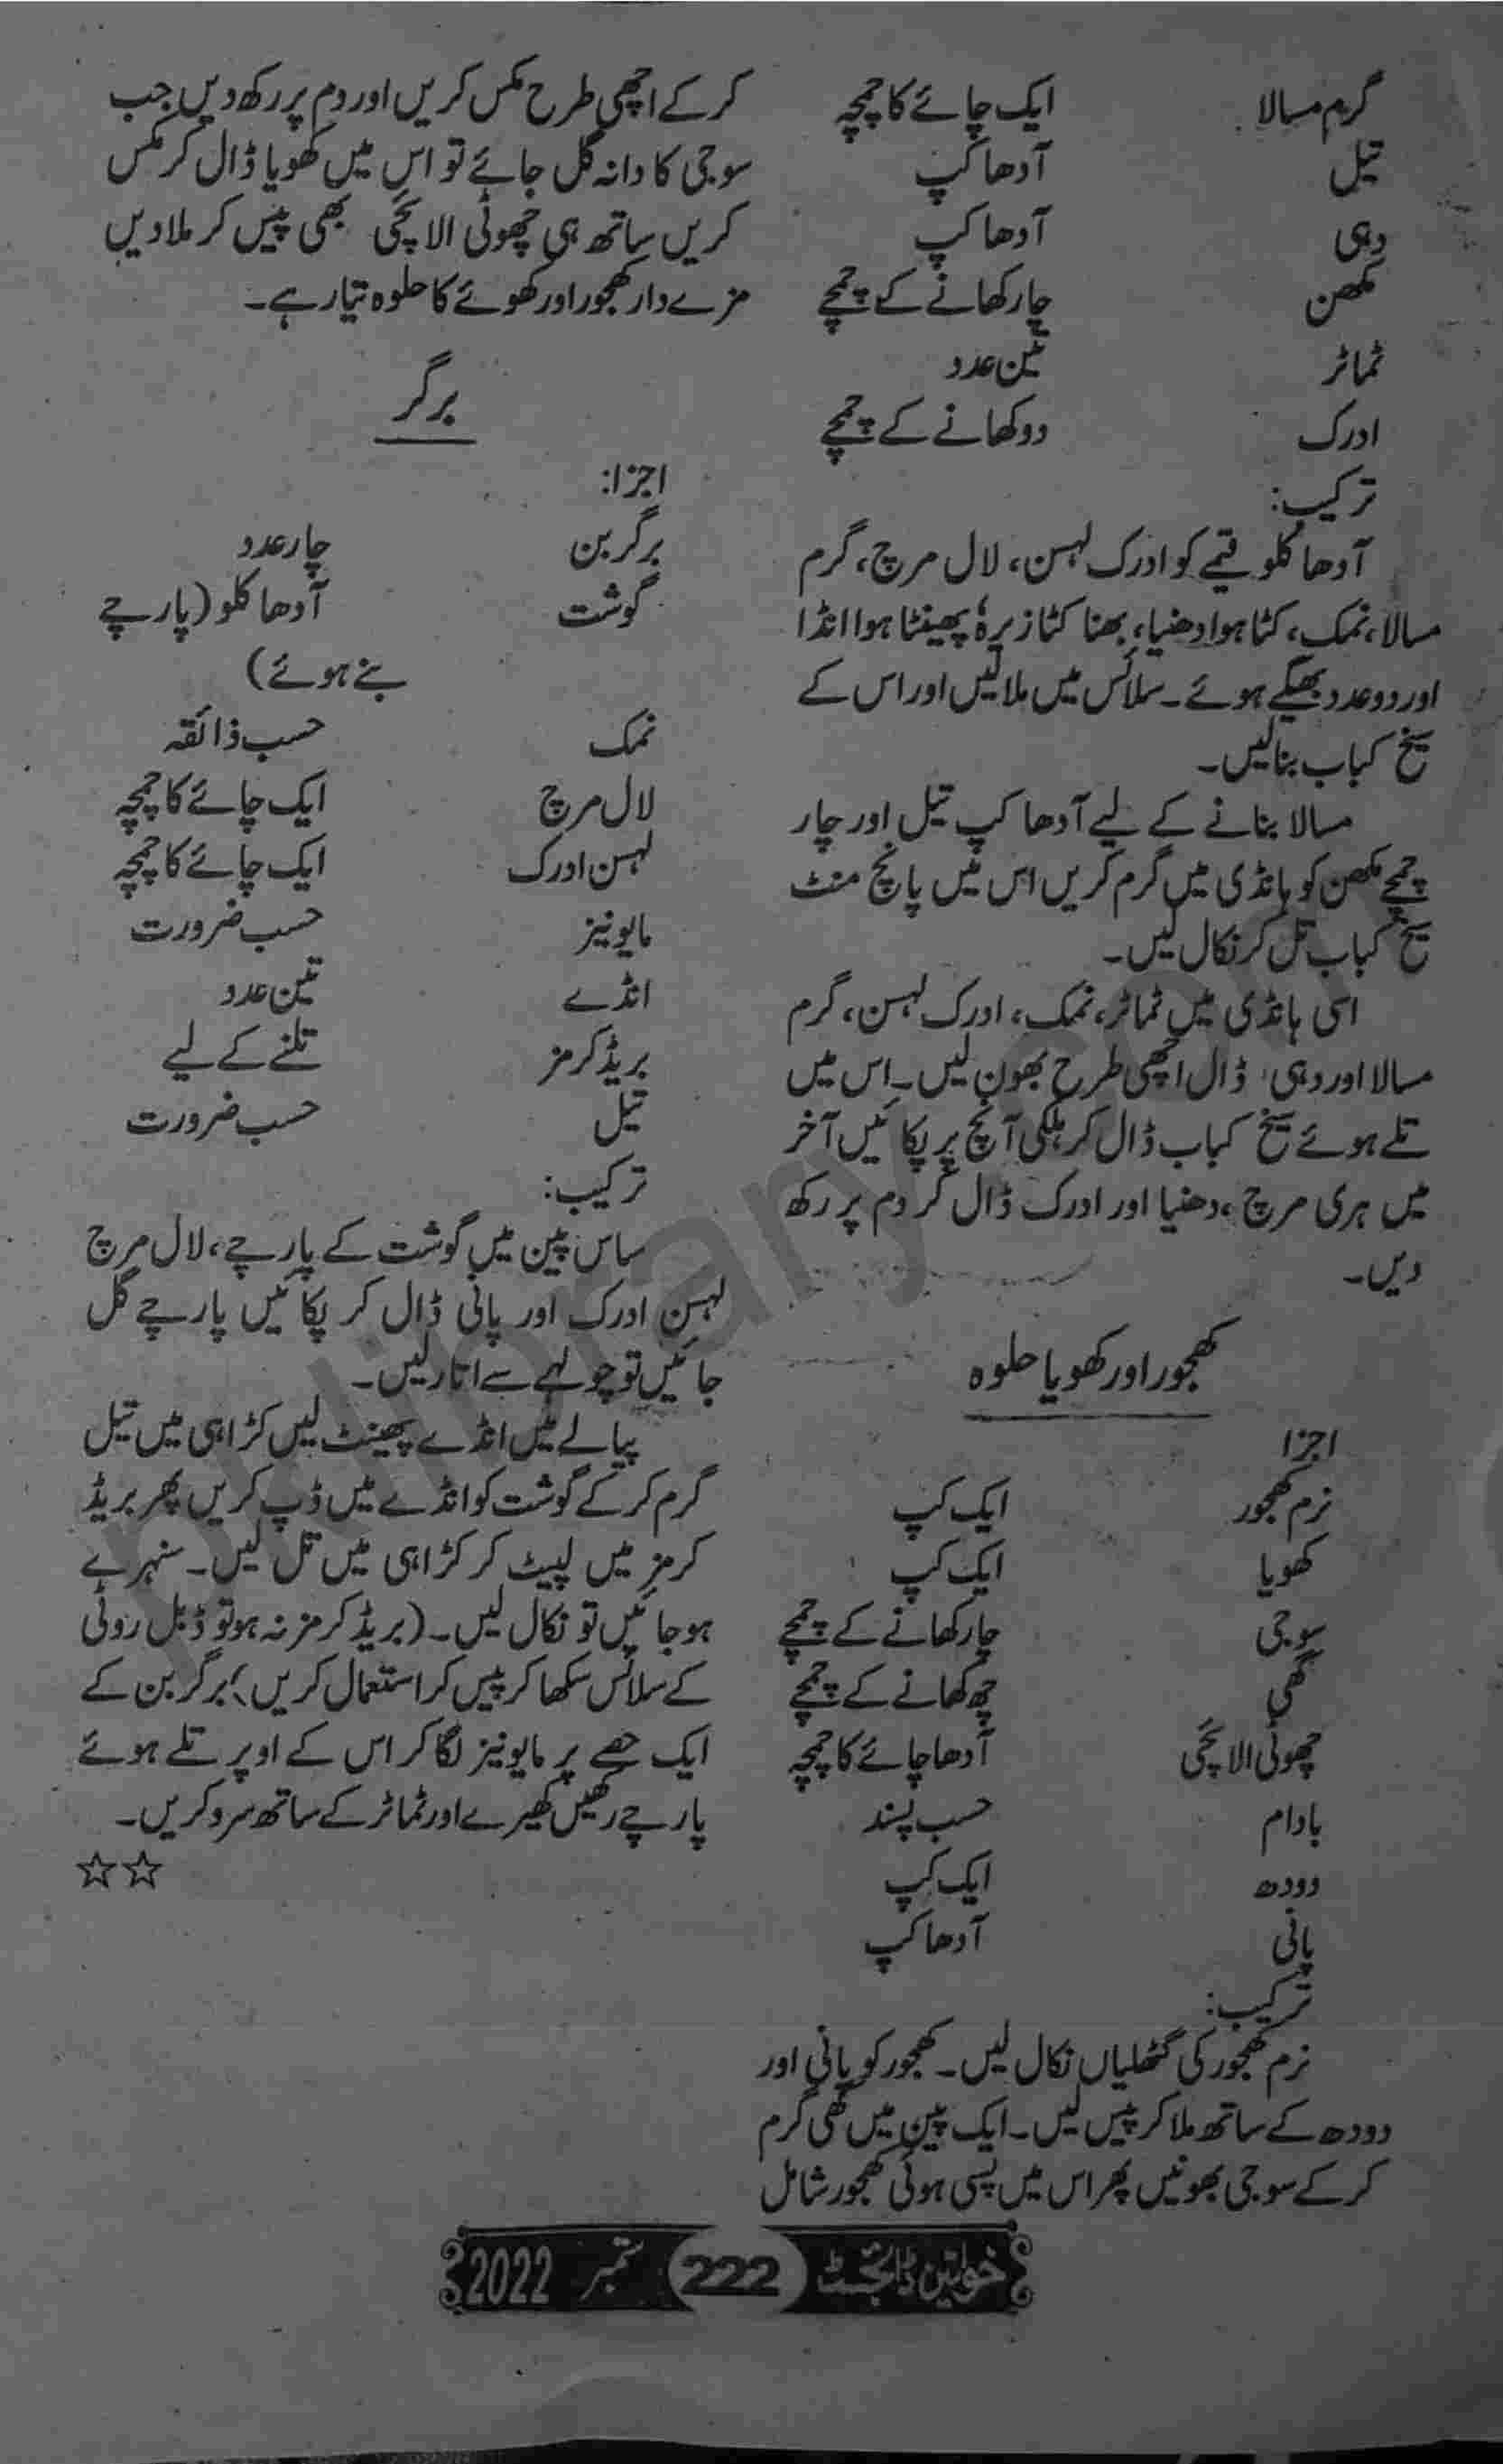 گرم مسالا ایک چائے کا چمچہ
تیل آدھا کپ
دہی آدھا کپ
مکھن چار کھانے کے چمچے
ٹماٹر تین عدد
ادرک دو کھانے کے چمچے
ترکیب:
آدھا کلو قیمے کو ادرک لہسن، لال مرچ، گرم
مسالا، نمک، کٹا ہوا دھنیا، بھنا کٹا زیرہ، پھینٹا ہوا انڈا
اور دو عدد بھیگے ہوئے۔ سلائس میں ملا لیں اور اس کے
سیخ کباب بنا لیں۔
مسالا بنانے کے لیے آدھا کپ تیل اور چار
چمچے مکھن کو ہانڈی میں گرم کریں اس میں پانچ منٹ
سیخ کباب تل کر نکال لیں۔
اسی ہانڈی میں ٹماٹر، نمک، ادرک لہسن، گرم
مسالا اور دہی ڈال اچھی طرح بھون لیں۔ اس میں
تلے ہوئے سیخ کباب ڈال کر ہلکی آنچ پر پکائیں آخر
میں ہری مرچ، دھنیا اور ادرک ڈال کر دم پر رکھ
دیں۔
کھجور اور کھویا حلوہ
اجزا
نرم کھجور ایک کپ
کھویا ایک کپ
سوجی چار کھانے کے چمچے
گھی چھ کھانے کے چمچے
چھوٹی الائچی آدھا چائے کا چمچہ
بادام حسب پسند
دودھ ایک کپ
پانی آدھا کپ
ترکیب:
نرم کھجور کی گٹھلیاں نکال لیں۔ کھجور کو پانی اور
دودھ کے ساتھ ملا کر پیس لیں۔ ایک پین میں گھی گرم
کر کے سوجی بھونیں پھر اس میں پسی ہوئی کھجور شامل
کر کے اچھی طرح مکس کریں اور دم پر رکھ دیں جب
سوجی کا دانہ گل جائے تو اس میں کھویا ڈال کر مکس
کریں ساتھ ہی چھوٹی الائچی بھی پیس کر ملا دیں
مزے دار کھجور اور کھوئے کا حلوہ تیار ہے۔
برگر
اجزا:
برگر بن چار عدد
گوشت آدھا کلو (پارچے
بنے ہوئے)
نمک حسب ذائقہ
لال مرچ ایک چائے کا چمچہ
لہسن ادرک ایک چائے کا چمچہ
مایونیز حسب ضرورت
انڈے تین عدد
بریڈ کرمز تلنے کے لیے
تیل حسب ضرورت
ترکیب:
ساس پین میں گوشت کے پارچے، لال مرچ
لہسن ادرک اور پانی ڈال کر پکائیں پارچے گل
جائیں تو چولہے سے اتار لیں۔
پیالے میں انڈے پھینٹ لیں کڑاہی میں تیل
گرم کر کے گوشت کو انڈے میں ڈپ کریں پھر بریڈ
کرمز میں لپیٹ کر کڑاہی میں تل لیں۔ سنہرے
ہو جائیں تو نکال لیں۔ (بریڈ کرمز نہ ہو تو ڈبل روٹی
کے سلائس سکھا کر پیس کر استعمال کریں) برگر بن کے
ایک حصے پر مایونیز لگا کر اس کے اوپر تلے ہوئے
پارچے رکھیں کھیرے اور ٹماٹر کے ساتھ سرو کریں۔
☆☆
خواتین ڈائجسٹ 222 ستمبر 2022